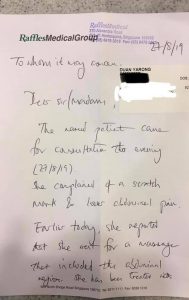 RafflesMedicalGroup
RafflesMedical
27/8/19
To whom it may concern
DUAN YARONG
DOB
Dear sir/madam,
The named patient came
for consultation this evening
(27/8/19)
She complained of a scratch
mark & lower abdominal pain.
Earlier today, she reported
that she went for a massage
that included the abdominal
region. She has been treated with